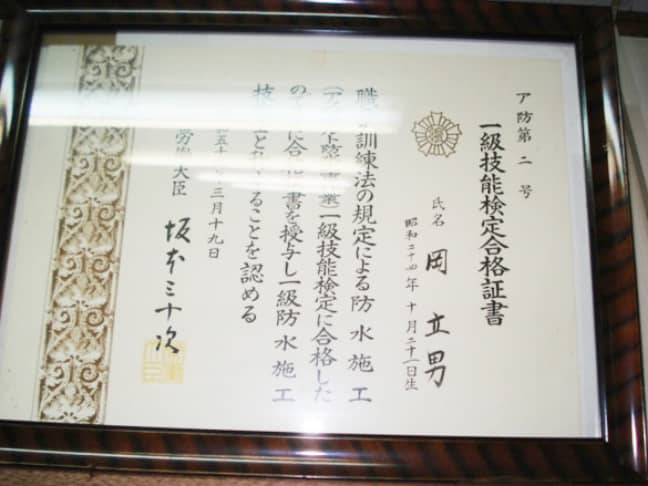 ア防第二号
一級技能検定合格証書
氏名 岡立男
昭和二十四年十月二十一日生
職 訓練法の規定による防水施工
一級技能検定に合格した
の に合 書を授与し一級防水施工
技 ることを認める
五十 三月十九日
労働大臣 坂本三十次